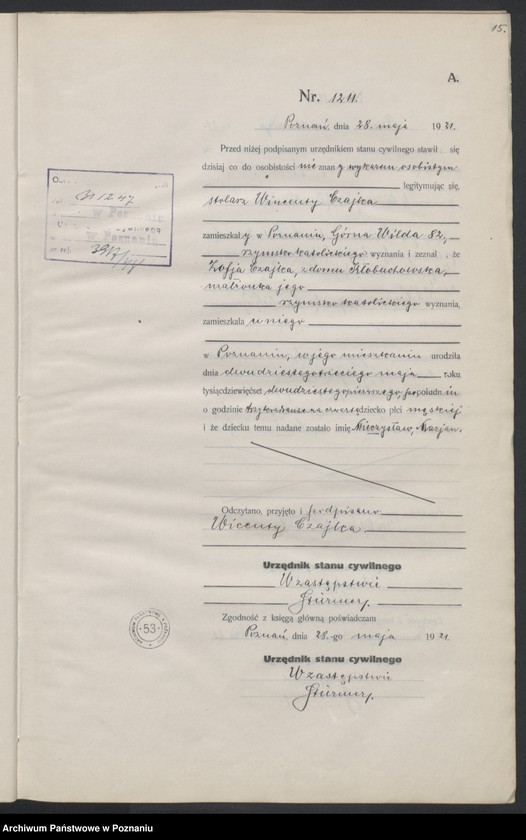 15.
A.
Nr. 1211.
Poznań, dnia 28. maja 1921.
Przed niżej podpisanym urzędnikiem stanu cywilnego stawił się
dzisiaj co do osobistości nieznany wykazem osobistym
legitymując się,
stolarz Wincenty Czajka
zamieszkały w Poznaniu, Górna Wilda 82,
rzymsko katolickiego wyznania i zeznał, że
Zofja Czajka, z domu Kłobuchowska,
małżonka jego
rzymsko katolickiego wyznania,
zamieszkała u niego
w Poznaniu, w jego mieszkaniu urodziła
dnia dwudziestego trzeciego maja roku
tysiącdziewięćset dwudziestego pierwszego, po południu
o godzinie dziecko płci męskiej
i że dziecku temu nadane zostało imię Mieczysław, Marjan.
Odczytano, przyjęto i podpisano
Wicenty Czajka
Urzędnik stanu cywilnego
W zastępstwie
Stürmer.
Zgodność z księgą główną poświadczam
Poznań, dnia 28-go maja 1921.
Urzędnik stanu cywilnego
W zastępstwie
Stürmer.
w Poznaniu
53
Archiwum Państwowe w Poznaniu